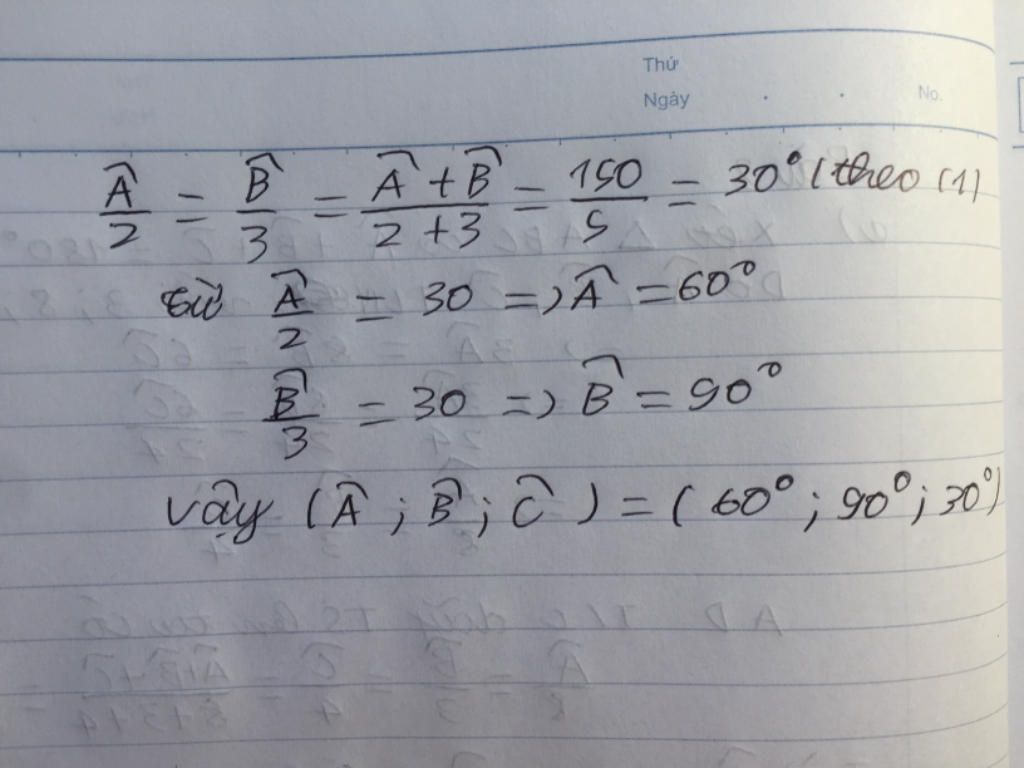 Thứ
Ngày . . No.
Â/2 = B̂/3 = (Â + B̂)/(2 + 3) = 150/5 = 30° (theo (1)
từ Â/2 = 30 => Â = 60°
B̂/3 = 30 => B̂ = 90°
vậy (Â ; B̂ ; Ĉ) = (60° ; 90° ; 30°)